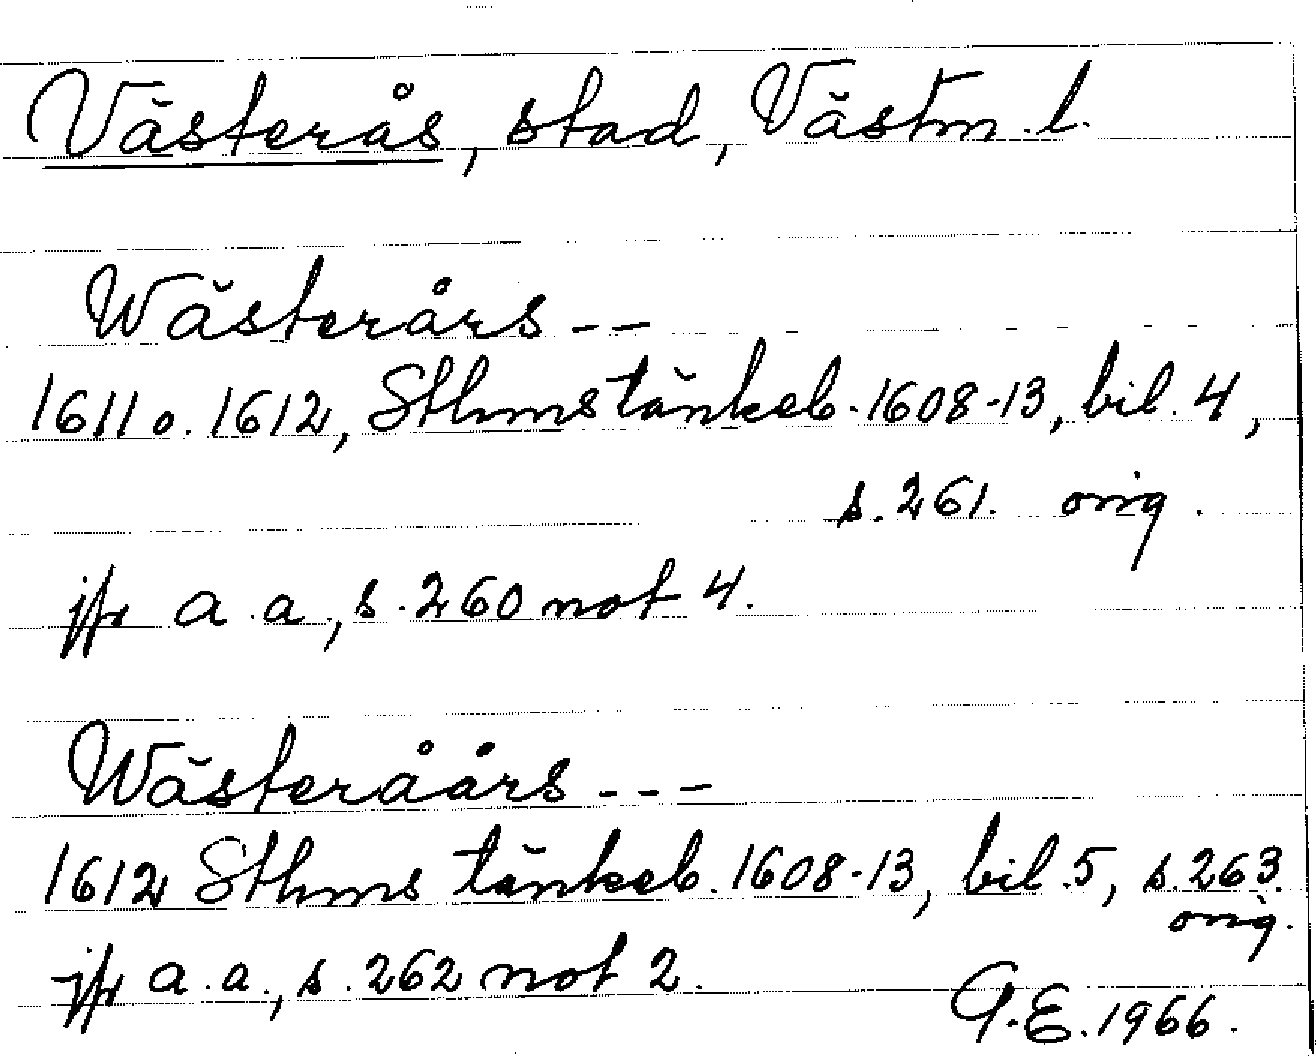 Västerås, stad, Västm. l.
Wästerårs - -
1611 o. 1612, Sthms tänkeb. 1608-13, bil. 4,
s. 261. orig.
jfr a. a., s. 260 not 4.
Wästeråårs - - -
1612 Sthms tänkeb. 1608-13, bil. 5, s. 263.
orig.
jfr a. a., s. 262 not 2.
G. E. 1966.